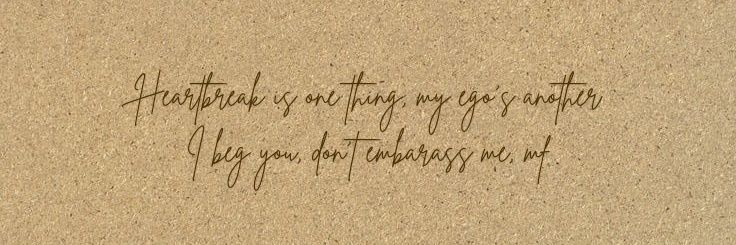 Heartbreak is one thing, my ego's another
I beg you, don't embarass me, mf